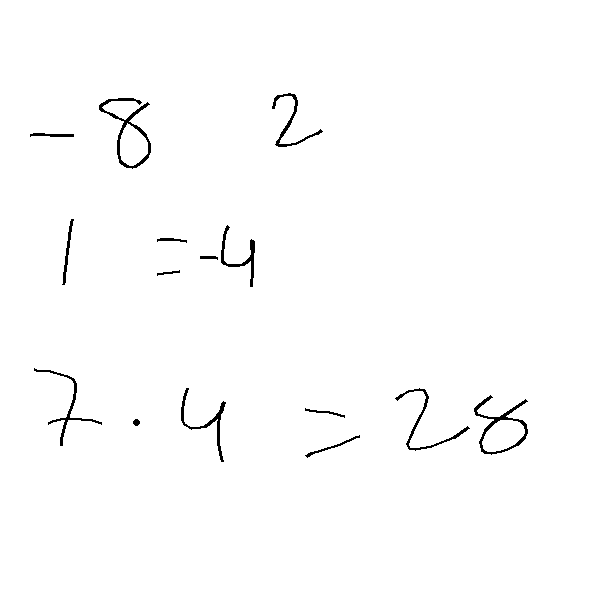 - 8 2
1 = -4
7 · 4 = 28